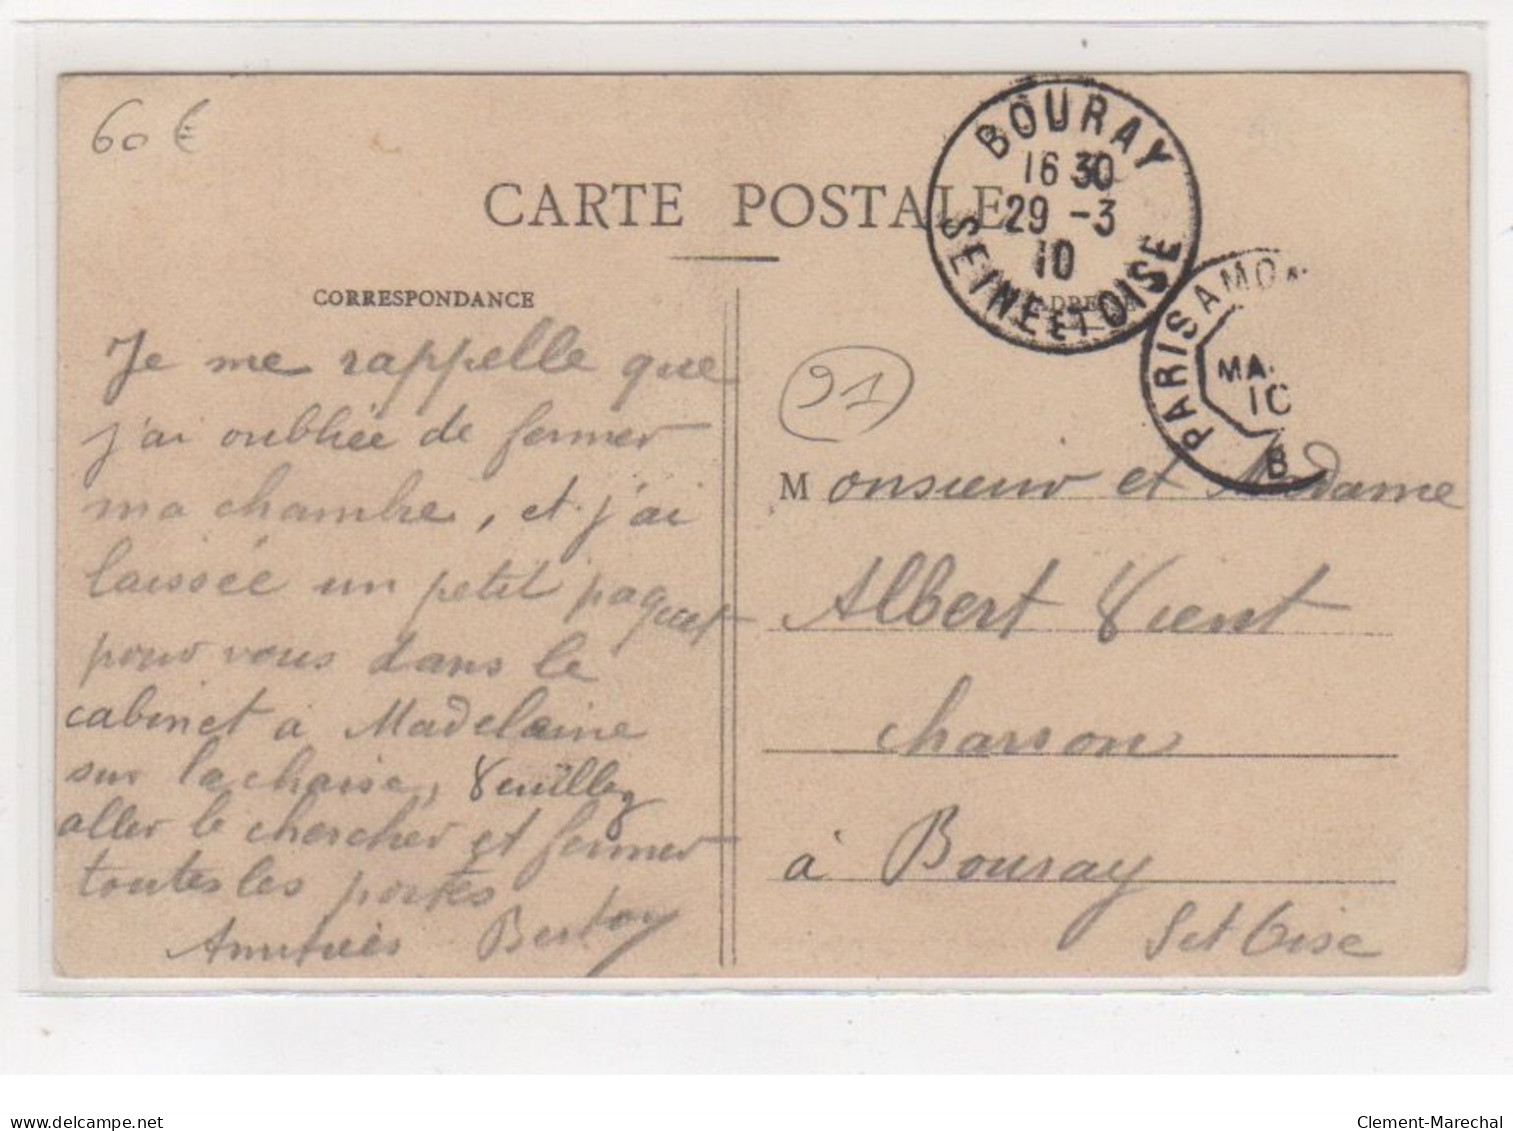 60 €
CARTE POSTALE
BOURAY
16 30
29 -3
10
SEINE ET OISE
PARIS A MO
MA
10
B
CORRESPONDANCE
Je me rappelle que
j'ai oubliée de fermer
ma chambre, et j'ai
laissée un petit paquet
pour vous dans le
cabinet à Madelaine
sur la chaise, Veuillez
aller le chercher et fermer
toutes les portes
Amitiés
91
Monsieur et Madame
Albert Vient
charron
à Bouray
S et Oise
delcampe.net
Clement-Marechal